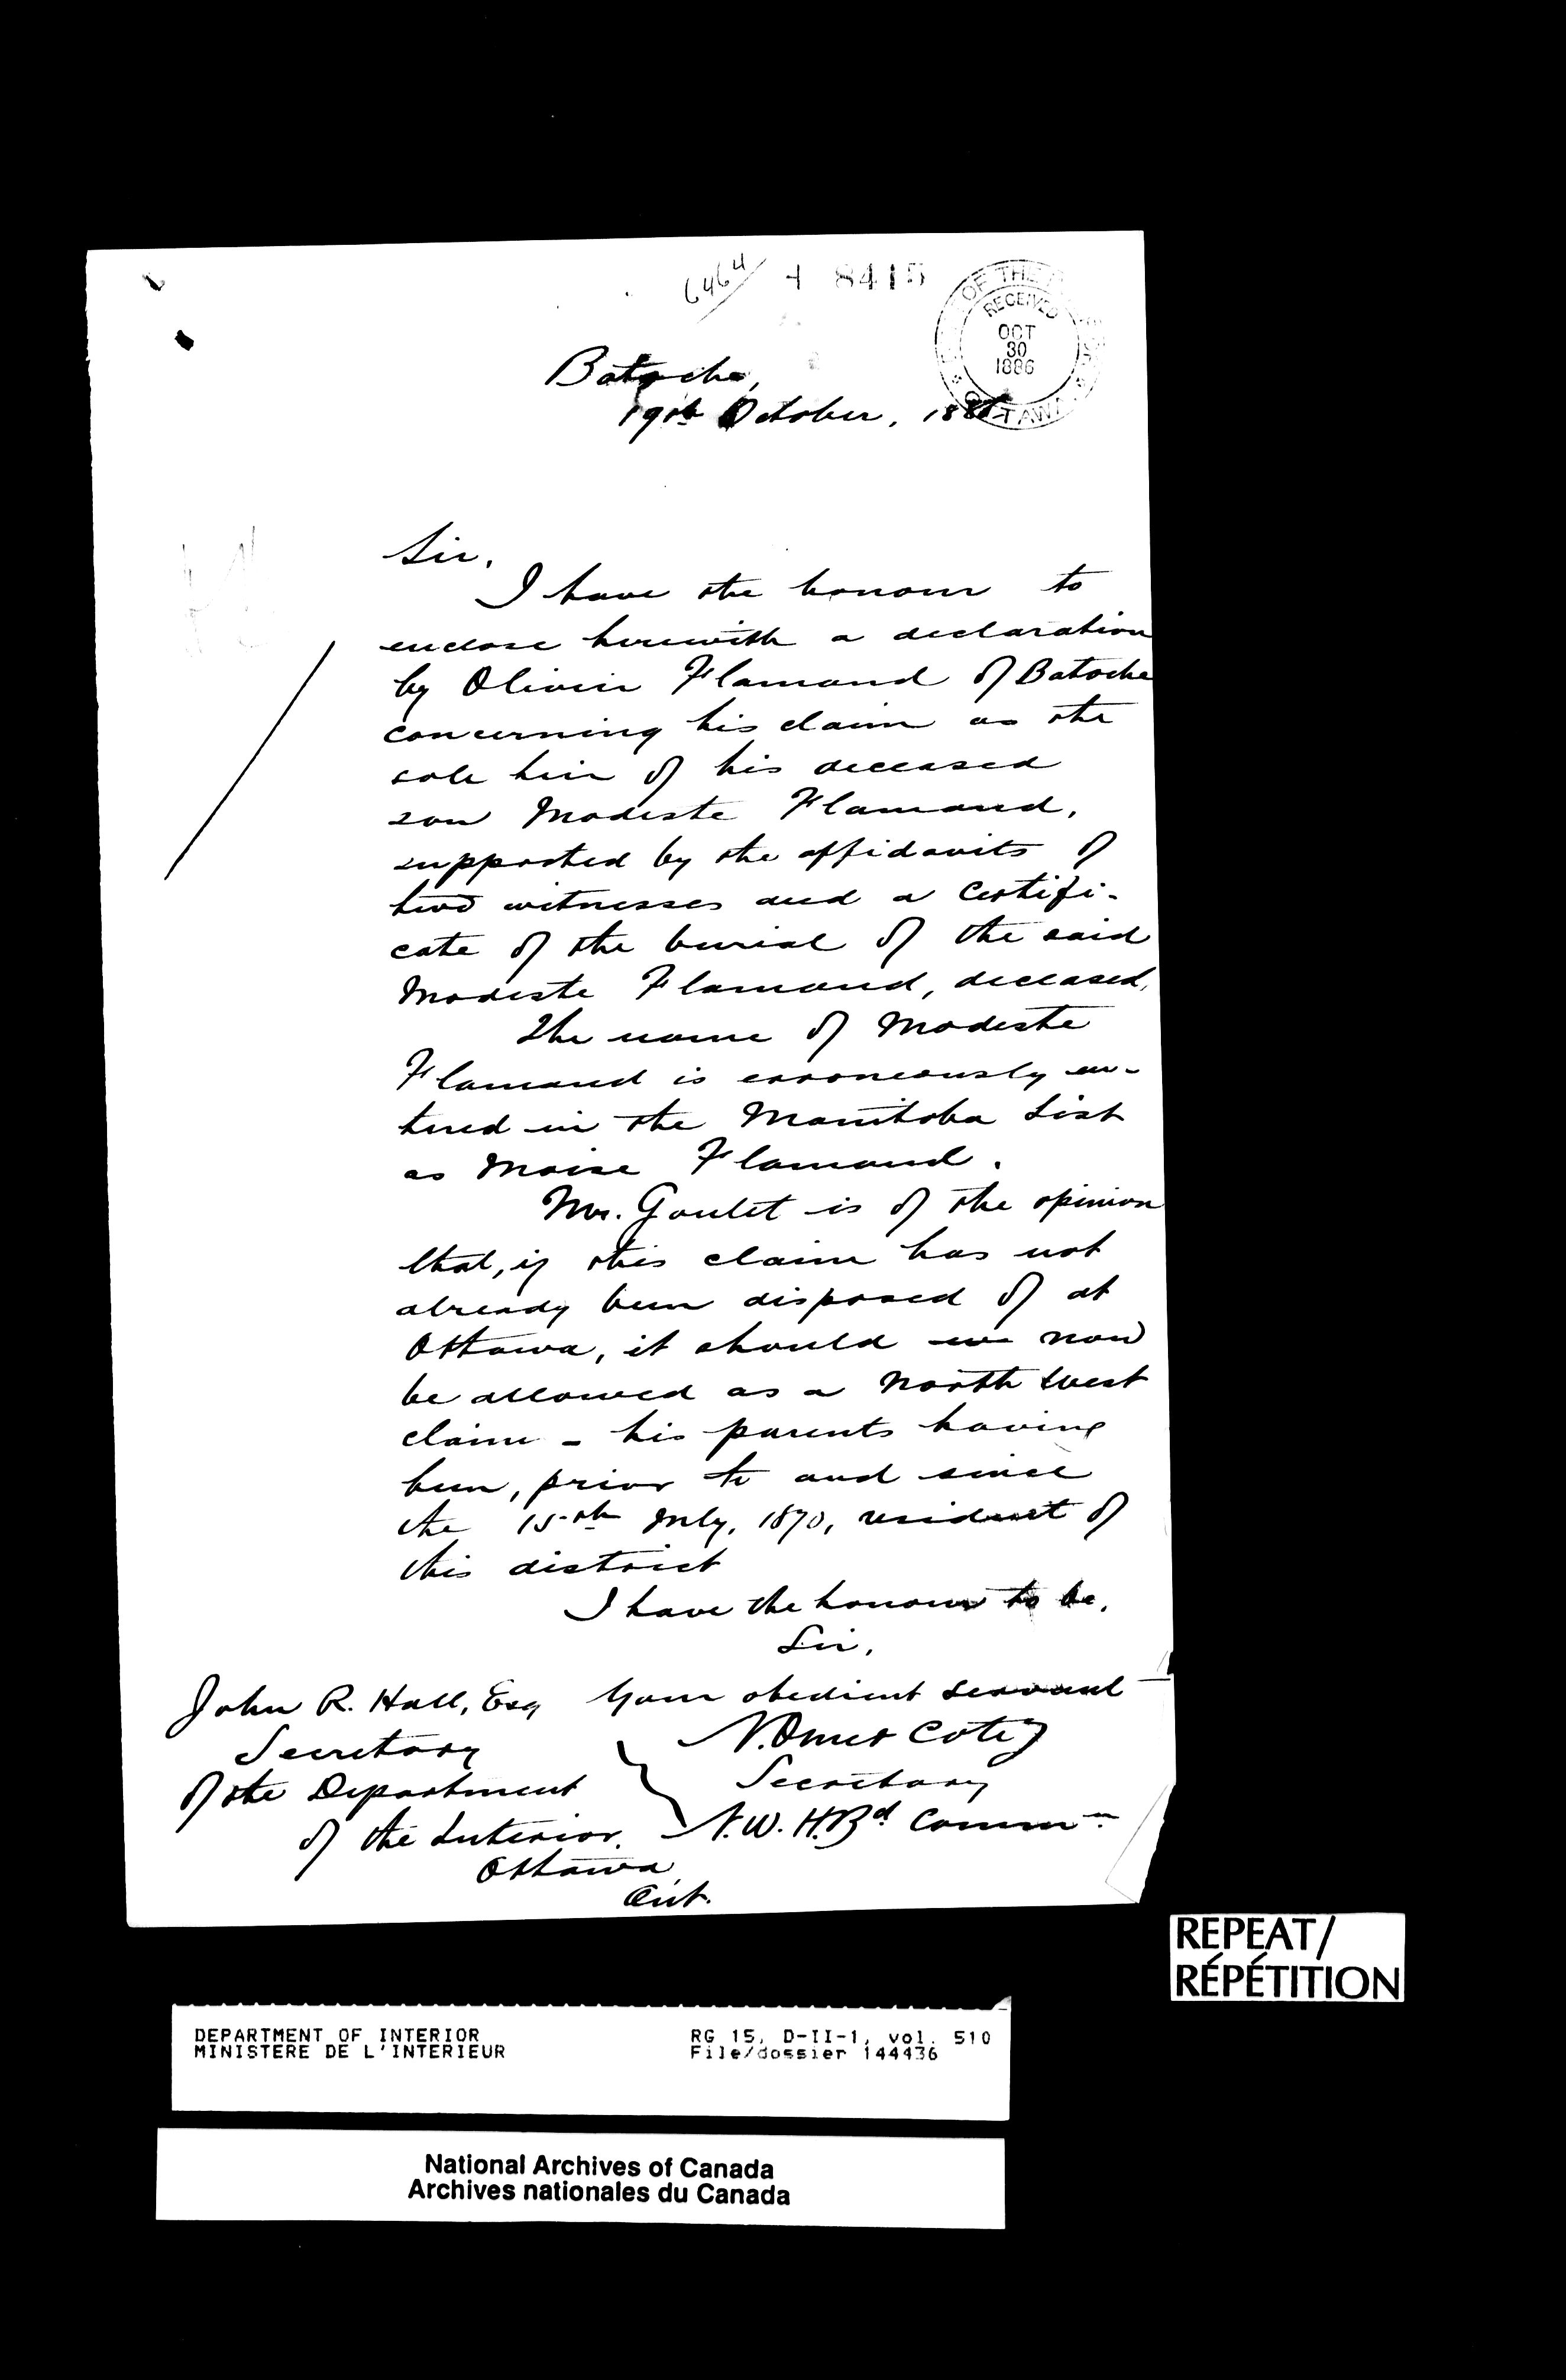 6464 8415
OF THE
RECEIVED
OCT
30
1886
OTTAWA
Batoche,
19th October, 1886
Sir,
I have the honour to
enclose herewith a declaration
by Olivier Flamand of Batoche
concerning his claim as the
sole heir of his deceased
son Modeste Flamand,
supported by the affidavits of
two witnesses and a Certifi-
cate of the burial of the said
Modeste Flamand, deceased,
The name of Modeste
Flamand is erroneously en-
tered in the Manitoba List
as Moise Flamand.
Mr. Goulet is of the opinion
that, if this claim has not
already been disposed of at
Ottawa, it should now
be allowed as a North West
claim - his parents having
been, prior to and since
the 15th July, 1870, resident of
this district
I have the honour to be,
Sir,
Your obedient servant
N. Omer Coté
Secretary
N. W. H. Bd Commn
John R. Hall, Esq
Secretary
of the Department
of the Interior.
Ottawa,
Ont.
REPEAT/
RÉPÉTITION
DEPARTMENT OF INTERIOR RG 15, D-II-1, vol. 510
MINISTERE DE L'INTERIEUR File/dossier 144436
National Archives of Canada
Archives nationales du Canada